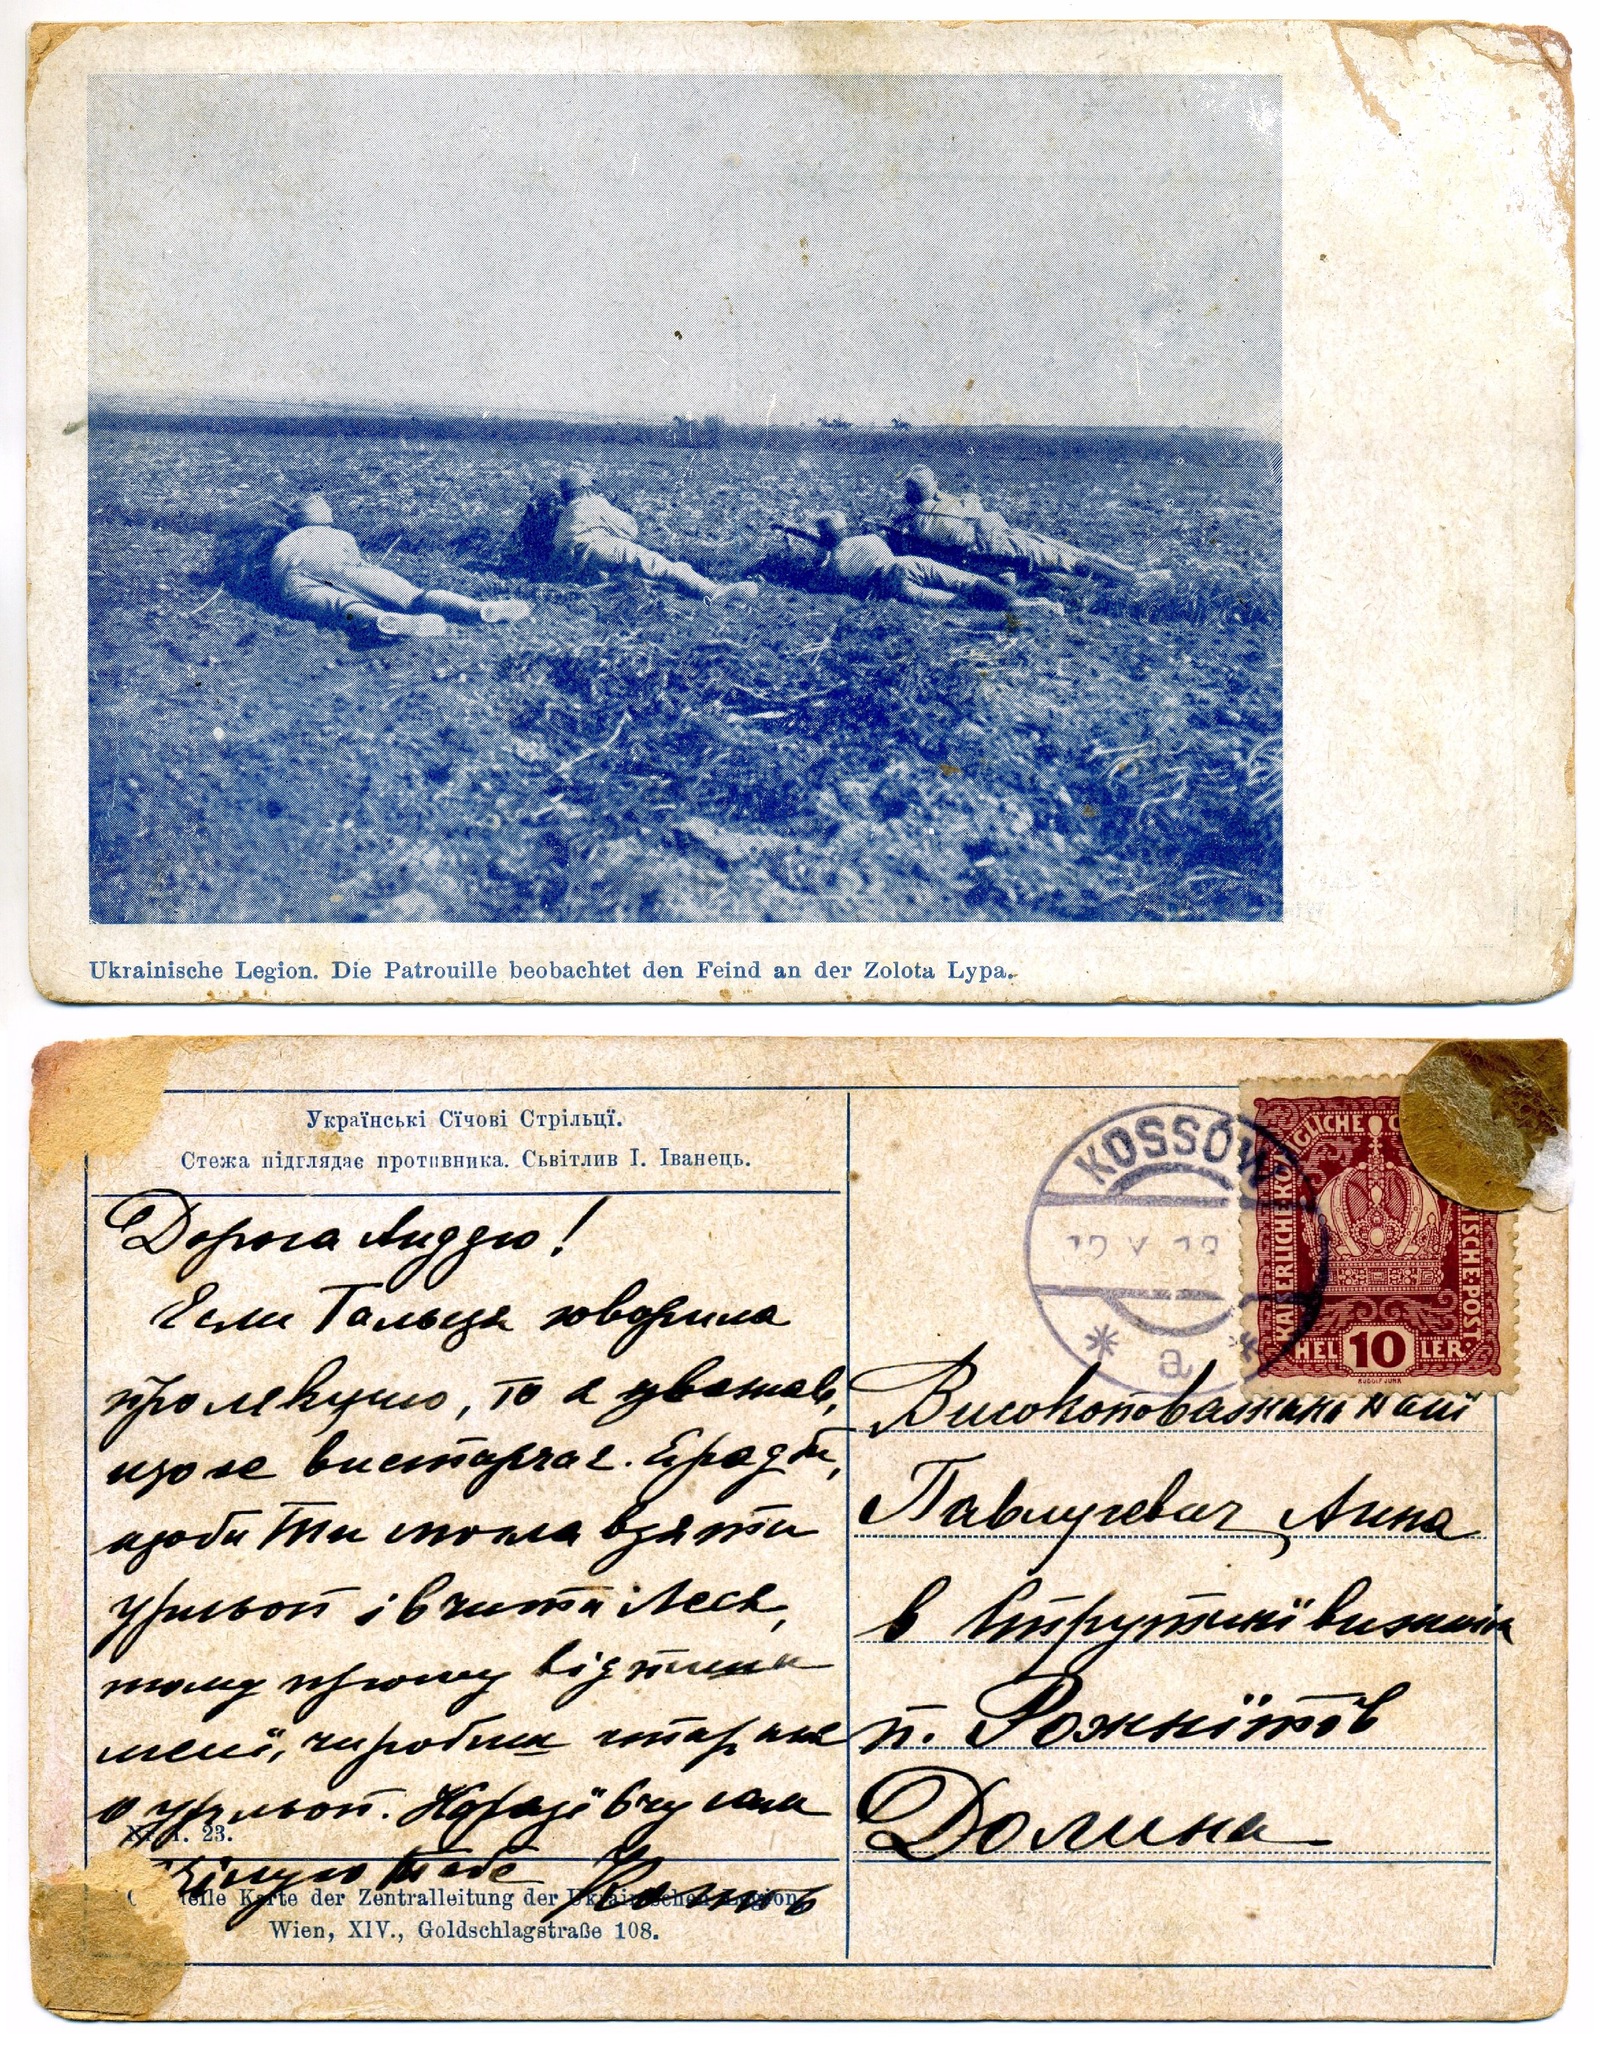 Ukrainische Legion. Die Patrouille beobachtet den Feind an der Zolota Lypa.
Українські Сїчові Стрільцї.
Стежа підглядає противника. Сьвітлив І. Іванець.
Дорога
Если говорила
про лекцию, то я уважав,
що не вистарчає.
щоби Ти могла взяти
урльоп і вчити
тому прошу відпиши
мені, чи робиш старане
о урльоп.
Цілую Тебе
Nr. 1. 23.
Karte der Zentralleitung der Ukrainischen Legion,
Wien, XIV., Goldschlagstraße 108.
KOSSÓW
a
KAISERLICHE KÖNIGLICHE ÖSTERREICHISCHE POST
HEL 10 LER
RUDOLF JUNK
Високоповажана Панї
Павлусевич Анна
в Струтинї вижнім
п. Рожнїтів
Долина